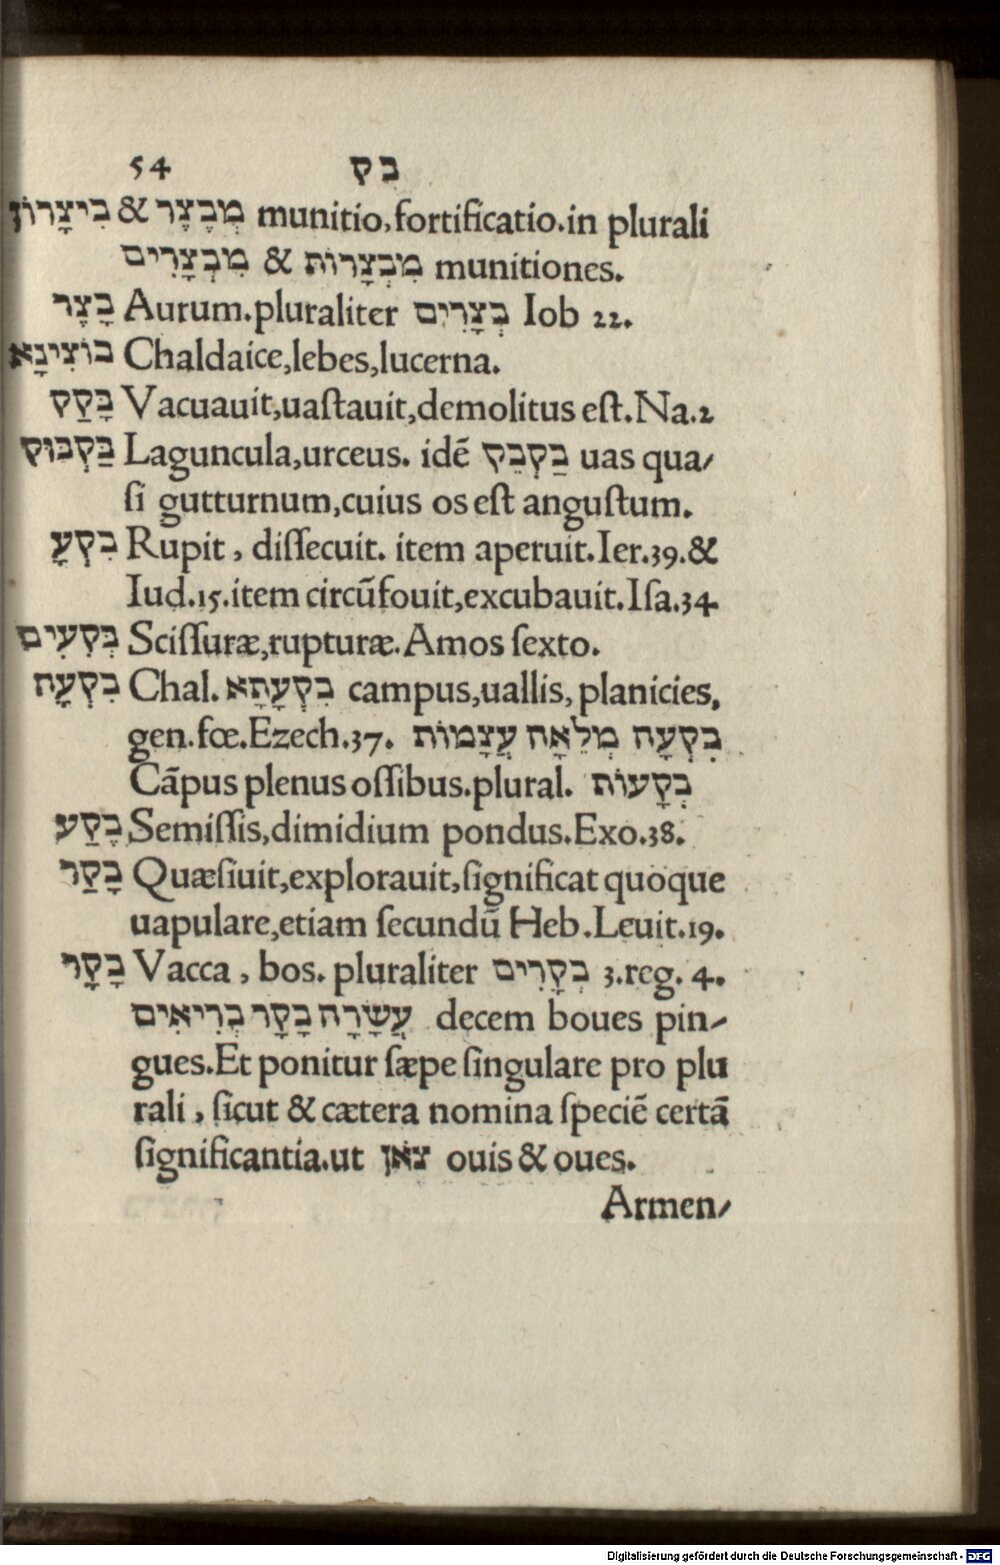 54 בק
בִיצָרוֹן & מְבֶצֶר munitio,fortificatio.in plurali
מִבְצָרִים & מִבְצָרוֹת munitiones.
בָצֶר Aurum.pluraliter בְצָרִים Iob 22.
בוֹצִינָא Chaldaice,lebes,lucerna.
בָּקַק Vacuauit,uaſtauit,demolitus eſt.Na.2
בַּקְבּוּק Laguncula,urceus. idē בַקְבֵק uas qua/
ſi gutturnum,cuius os eſt anguſtum.
בִקְעָ Rupit, diſſecuit. item aperuit.Ier.39.&
Iud.15.item circūfouit,excubauit.Iſa.34
בְּקִעִים Sciſſuræ,rupturæ.Amos ſexto.
בִקְעָה Chal. בִקְעָתָא campus,uallis, planicies,
gen.fœ.Ezech.37. בִקְעָה מְלֵאָה עֲצָמוֹת
Cāpus plenus oſſibus.plural. בְקָעוֹת
בֶקַע Semiſſis,dimidium pondus.Exo.38.
בָקַר Quæsiuit,explorauit,ſignificat quoque
uapulare,etiam ſecundū Heb.Leuit.19.
בָקָר Vacca, bos. pluraliter בְקָרִים 3.reg. 4.
עֲשָׂרָה בָקָר בְרִיאִים decem boues pin/
gues.Et ponitur ſæpe ſingulare pro plu
rali, ſicut & cætera nomina ſpeciē certā
ſignificantia.ut צאֹן ouis & oues.
Armen/
Digitalisierung gefördert durch die Deutsche Forschungsgemeinschaft - DFG